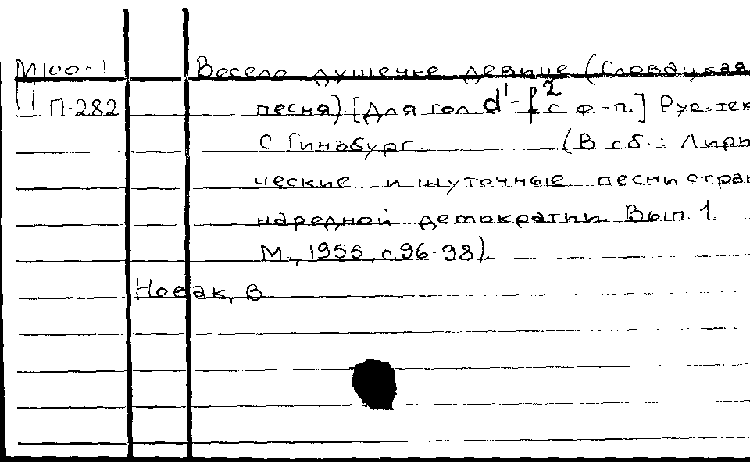 М100-1 Весело душечке девице (Словацкая
П-282 песня) [Для гол d¹-f² с ф.-п.] Рус.тек
С Гинзбург (В сб.: Лири
ческие и шуточные песни стран
народной демократии. Вып. 1.
М., 1955, с 96-98)
Новак, В